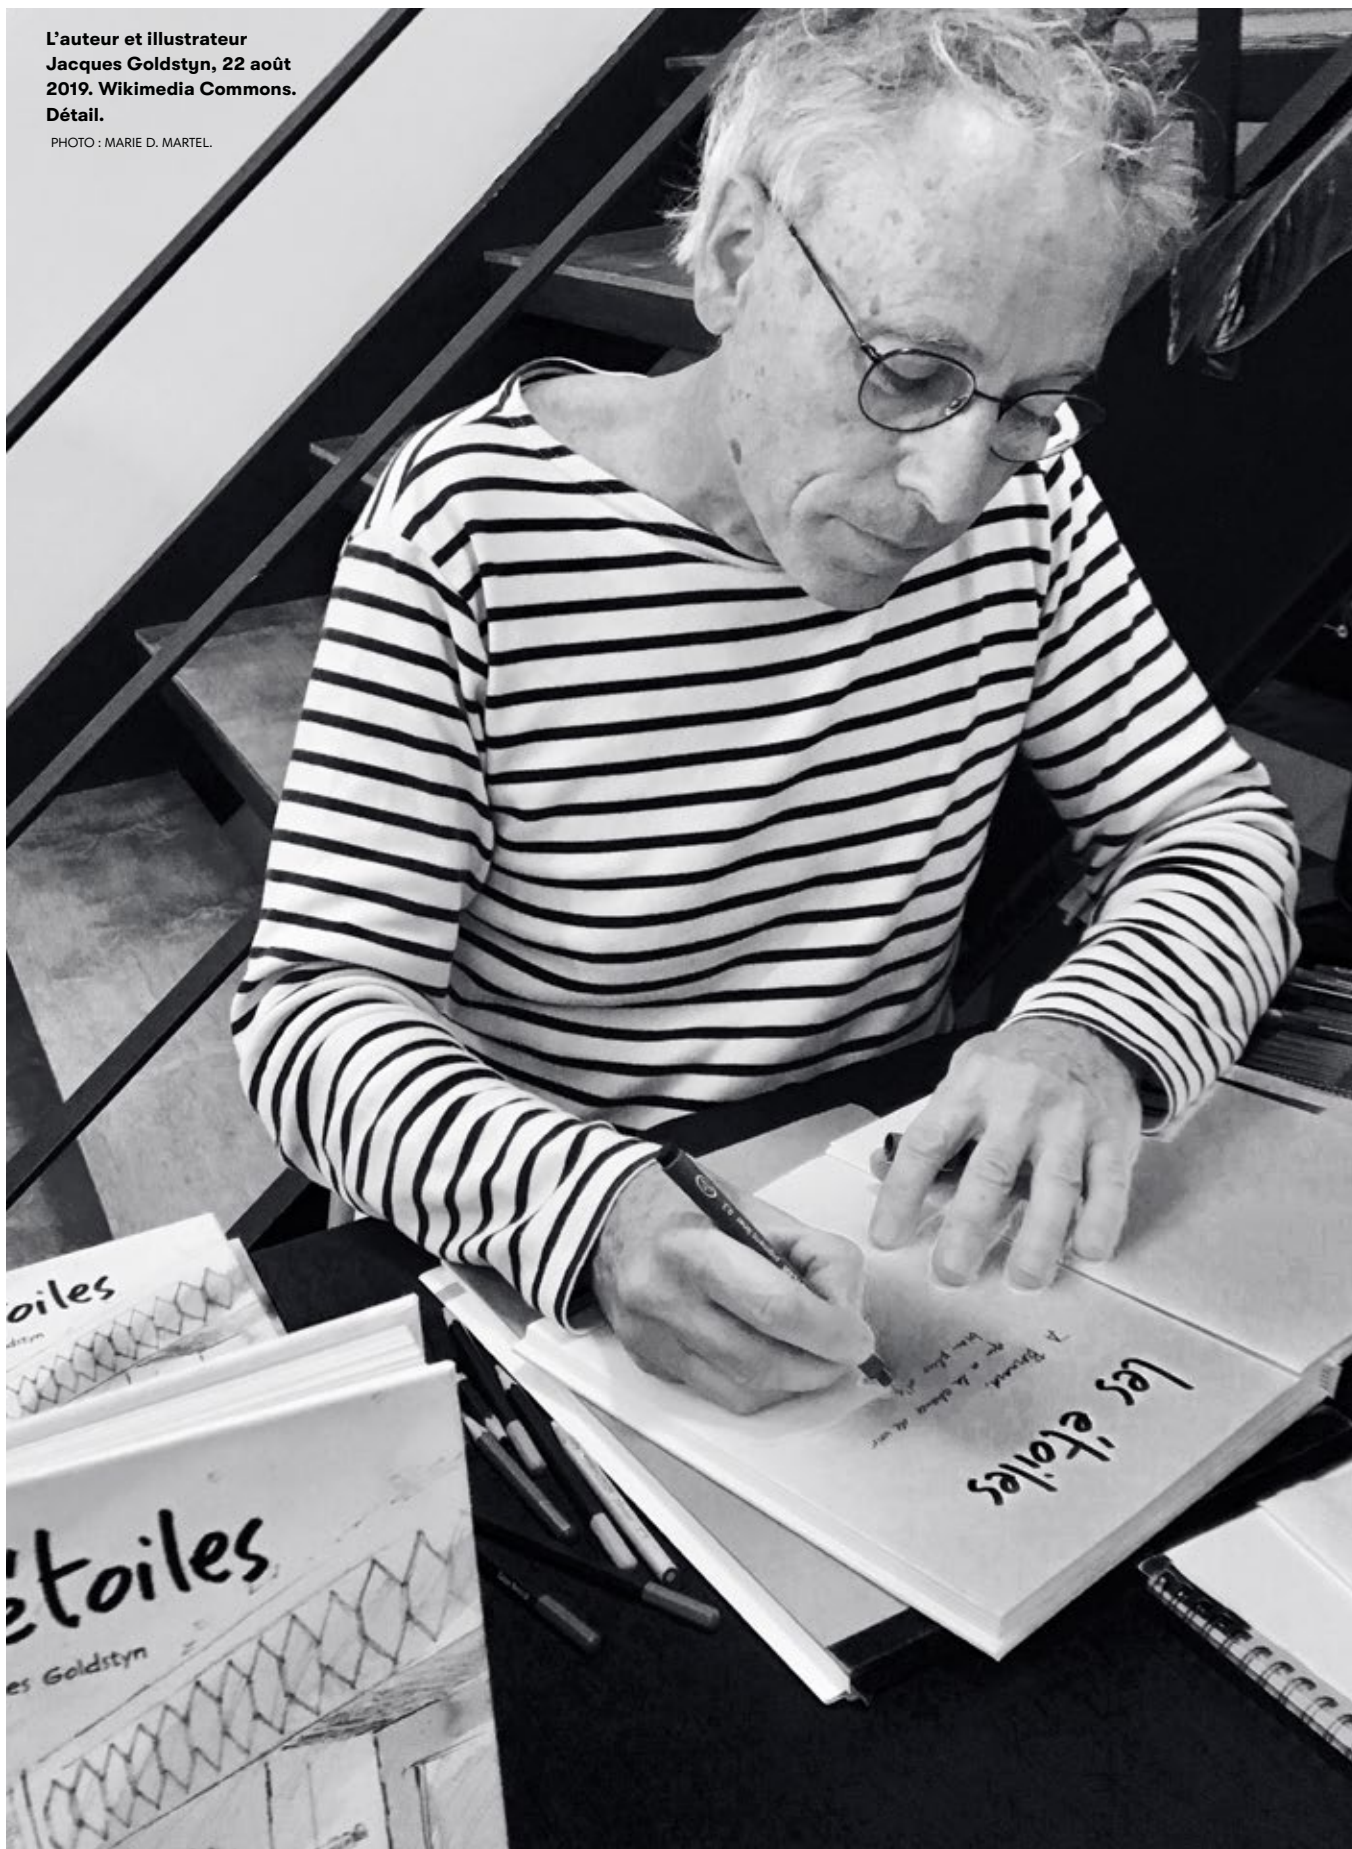 L’auteur et illustrateur
Jacques Goldstyn, 22 août
2019. Wikimedia Commons.
Détail.
PHOTO : MARIE D. MARTEL.
oiles
étoiles
es Goldstyn
Les étoiles